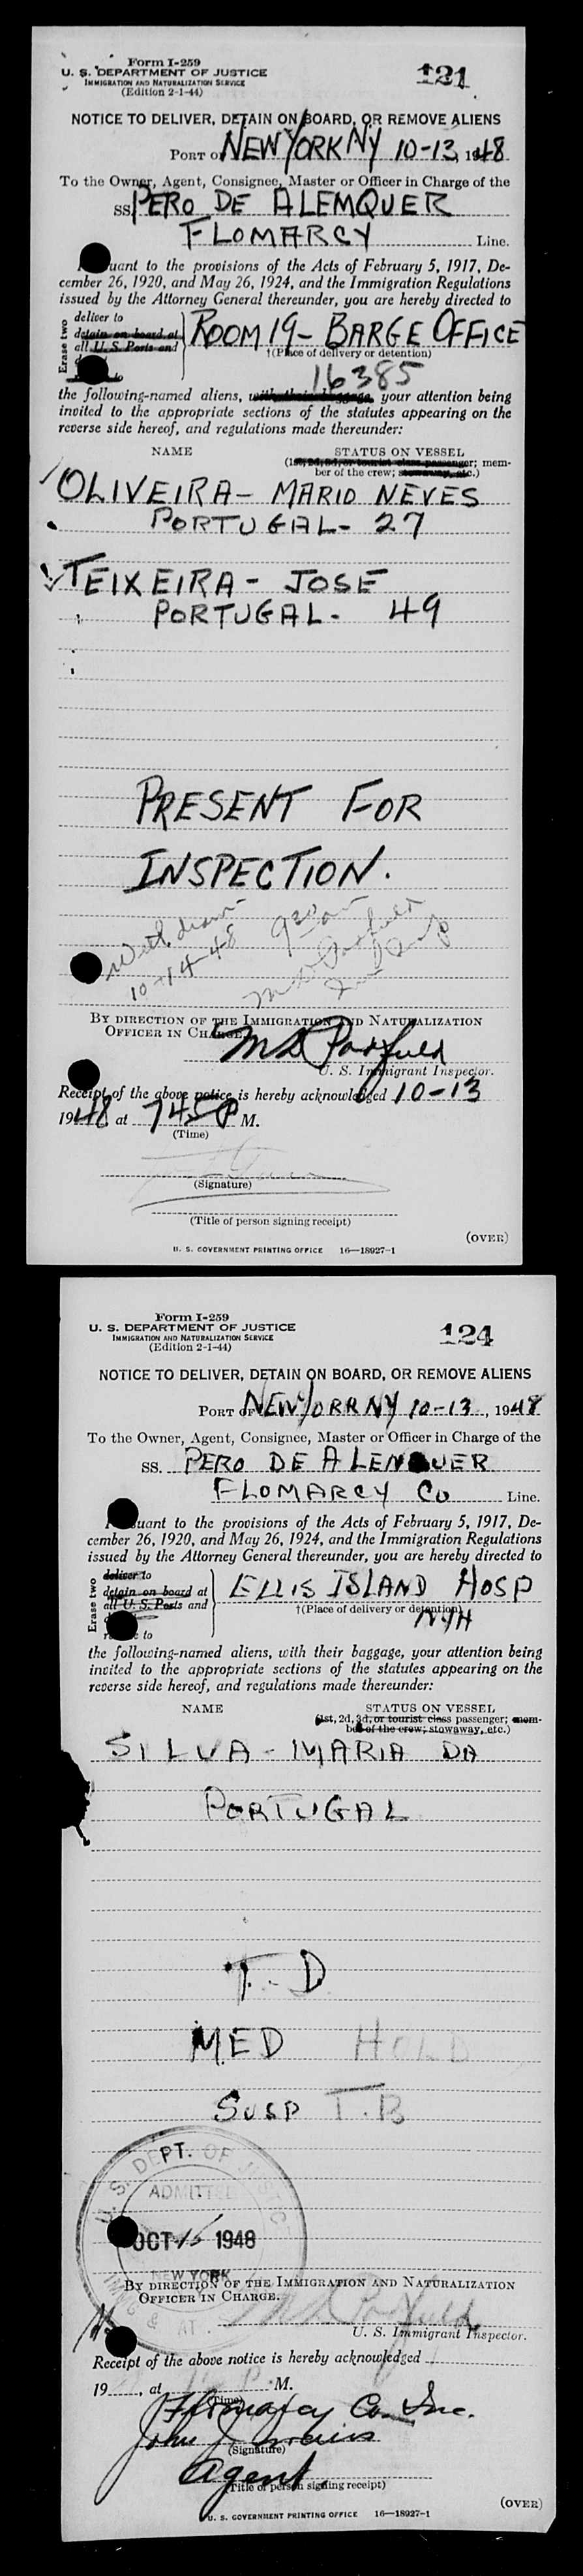 Form I-259
U. S. DEPARTMENT OF JUSTICE
IMMIGRATION AND NATURALIZATION SERVICE
(Edition 2-1-44)
121
NOTICE TO DELIVER, DETAIN ON BOARD, OR REMOVE ALIENS
PORT OF NEW YORK NY 10-13, 1948
To the Owner, Agent, Consignee, Master or Officer in Charge of the
SS. PERO DE ALEMQUER
FLOMARCY Line.
uant to the provisions of the Acts of February 5, 1917, De-
cember 26, 1920, and May 26, 1924, and the Immigration Regulations
issued by the Attorney General thereunder, you are hereby directed to
Erase two
deliver to
detain on board at
all U. S. Ports and
to
ROOM 19- BARGE OFFICE
†(Place of delivery or detention)
16385
the following-named aliens, with their baggage, your attention being
invited to the appropriate sections of the statutes appearing on the
reverse side hereof, and regulations made thereunder:
NAME STATUS ON VESSEL
(1st, 2d, 3d, or tourist class passenger; mem-
ber of the crew; stowaway, etc.)
OLIVEIRA- MARIO NEVES
PORTUGAL- 27
TEIXEIRA- JOSE
PORTUGAL- 49
PRESENT FOR
INSPECTION.
Withdrawn 930 am
10-14-48
BY DIRECTION OF THE IMMIGRATION AND NATURALIZATION
OFFICER IN CHARGE.
U. S. Immigrant Inspector.
Receipt of the above notice is hereby acknowledged 10-13
1948 at 745 P M.
(Time)
(Signature)
(Title of person signing receipt)
(OVER)
U. S. GOVERNMENT PRINTING OFFICE 16—18927-1
Form I-259
U. S. DEPARTMENT OF JUSTICE
IMMIGRATION AND NATURALIZATION SERVICE
(Edition 2-1-44)
124
NOTICE TO DELIVER, DETAIN ON BOARD, OR REMOVE ALIENS
PORT OF NEW YORK NY 10-13, 1948
To the Owner, Agent, Consignee, Master or Officer in Charge of the
SS. PERO DE ALENQUER
FLOMARCY Co Line.
uant to the provisions of the Acts of February 5, 1917, De-
cember 26, 1920, and May 26, 1924, and the Immigration Regulations
issued by the Attorney General thereunder, you are hereby directed to
Erase two
deliver to
detain on board at
all U. S. Ports and
to
ELLIS ISLAND HOSP
†(Place of delivery or detention)
NYH
the following-named aliens, with their baggage, your attention being
invited to the appropriate sections of the statutes appearing on the
reverse side hereof, and regulations made thereunder:
NAME STATUS ON VESSEL
(1st, 2d, 3d, or tourist class passenger; mem-
ber of the crew; stowaway, etc.)
SILVA- MARIA DA
PORTUGAL
T. D
MED HOLD
SUSP T.B
U. S. DEPT. OF JUSTICE
ADMITTED
OCT 15 1948
NEW YORK
BY DIRECTION OF THE IMMIGRATION AND NATURALIZATION
OFFICER IN CHARGE.
U. S. Immigrant Inspector.
Receipt of the above notice is hereby acknowledged
19 , at P M.
(Time)
Flomarcy Co. Inc.
John J.
(Signature)
Agent
(Title of person signing receipt)
(OVER)
U. S. GOVERNMENT PRINTING OFFICE 16—18927-1